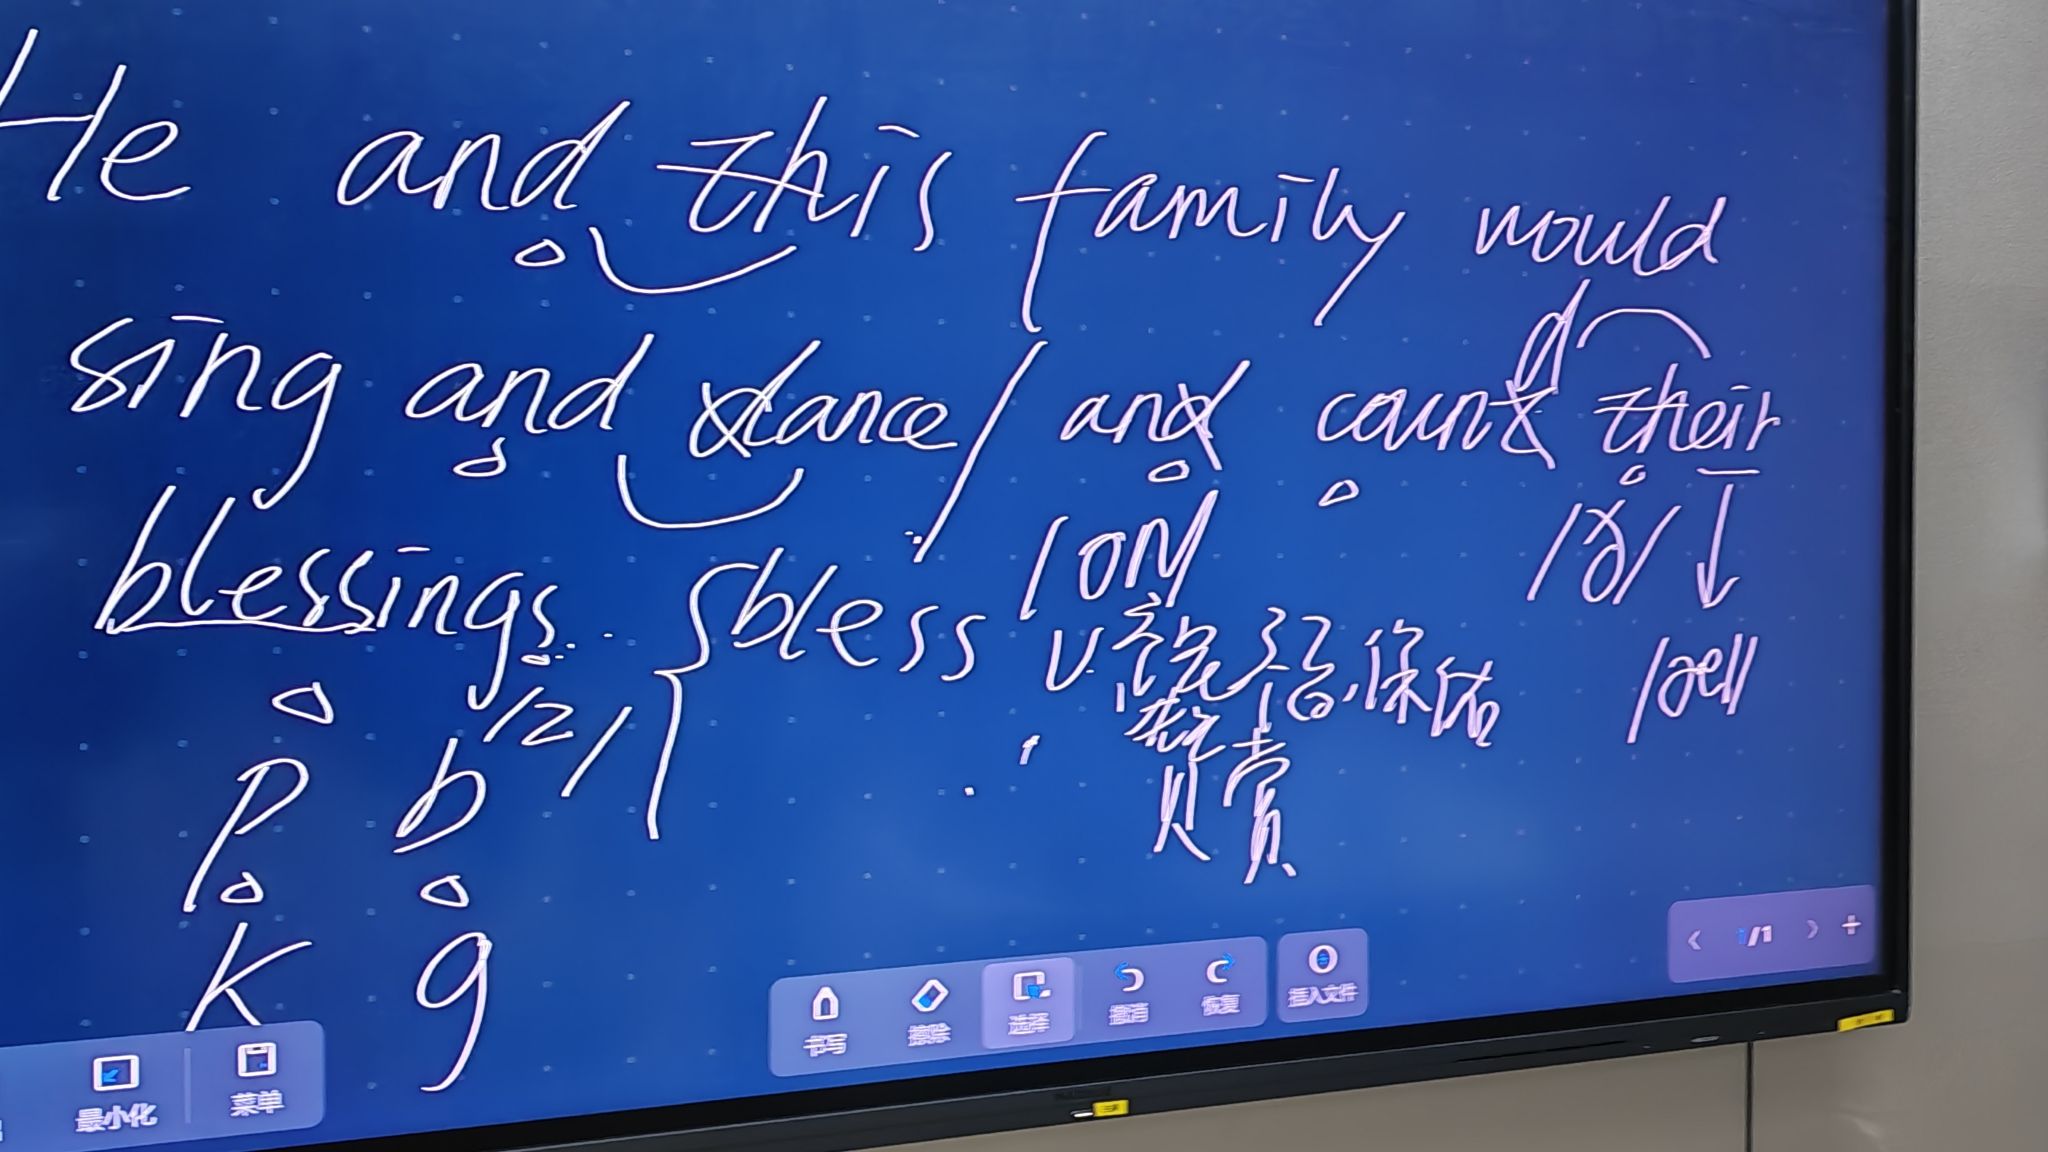 He and this family would
sing and dance / and count their
d
blessings. bless /ən/ /ð/
v. 祝福,保佑
赞赏
/z/
p b
k g
最小化 菜单
书写 擦除 选择 撤消 恢复 插入文件
1/1